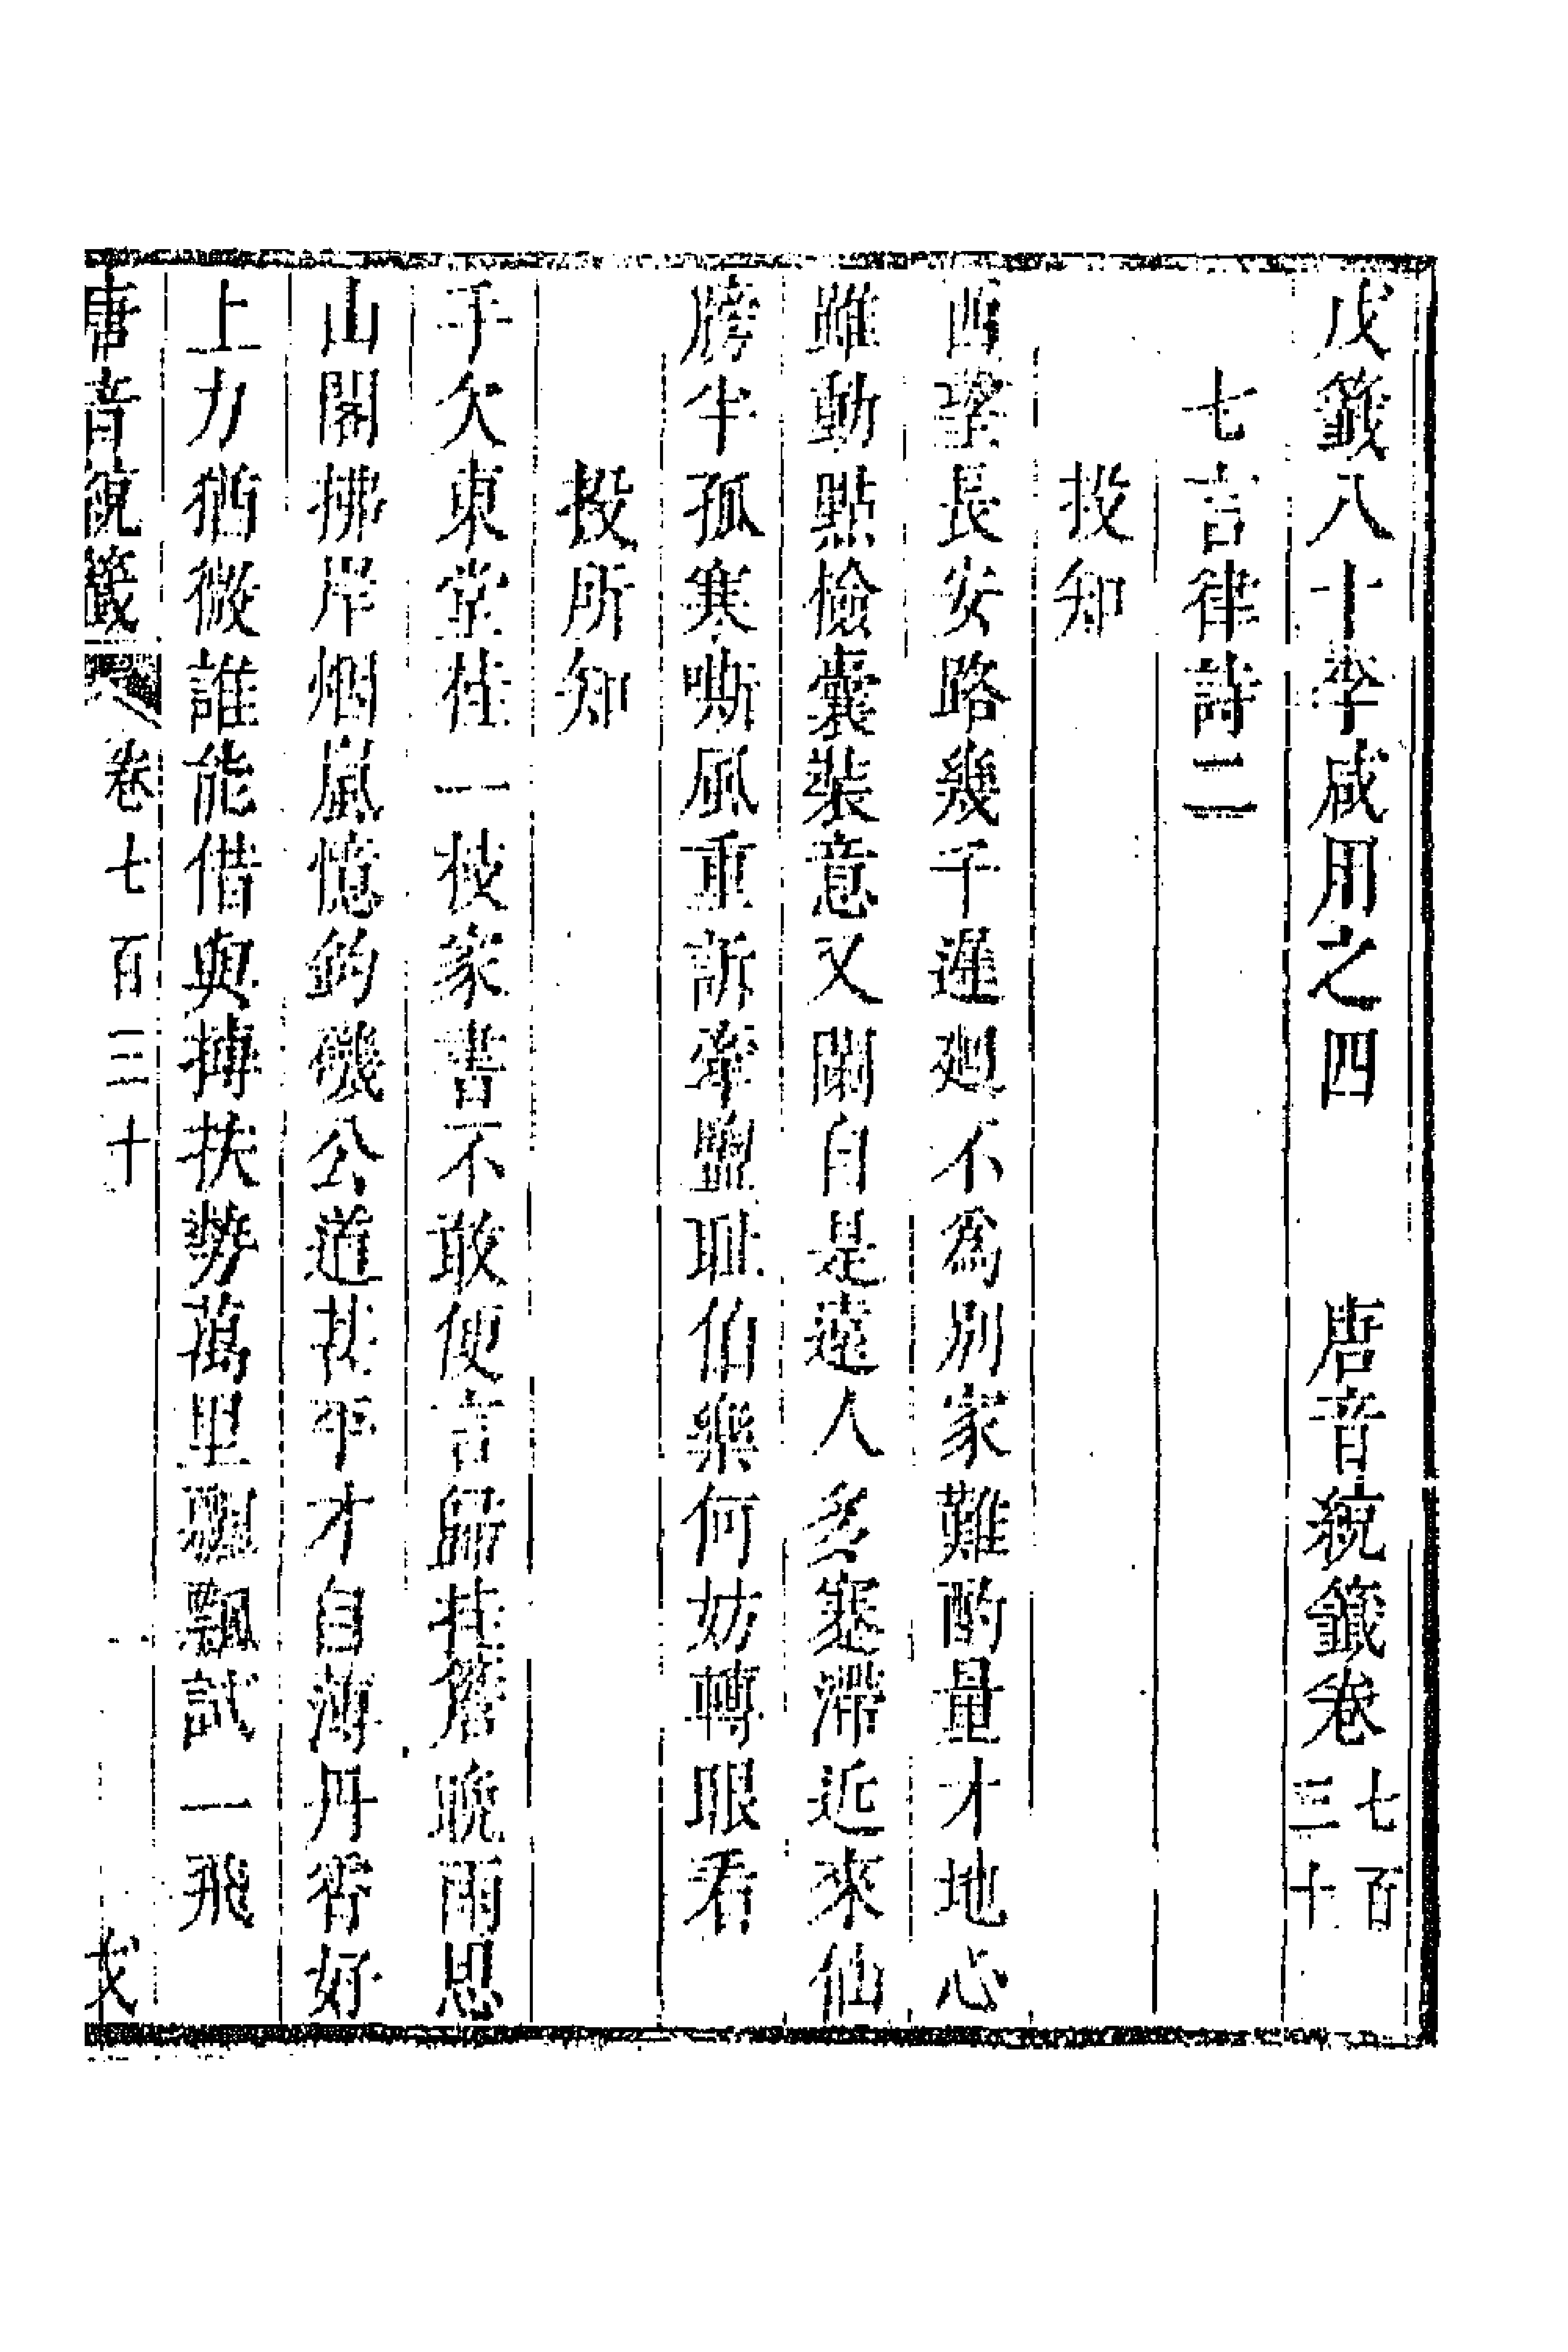 戊籤八十李咸用之四　唐音統籤卷七百三十
七言律詩二
投知
西望長安路幾千遲廻不爲別家難酌量才地心
雖動點檢囊裝意又闌自是遠人多蹇滯近來仙
牓半孤寒嘶風重訴牽鹽耻伯樂何妨轉眼看
投所知
手欠東堂桂一枝家書不敢便言歸挂簷晚雨思
山閣拂岸烟嵐憶釣磯公道甚平才自薄丹霄好
上力猶微誰能借與摶扶勢萬里飄飄試一飛
唐音統籤　卷七百三十　戊